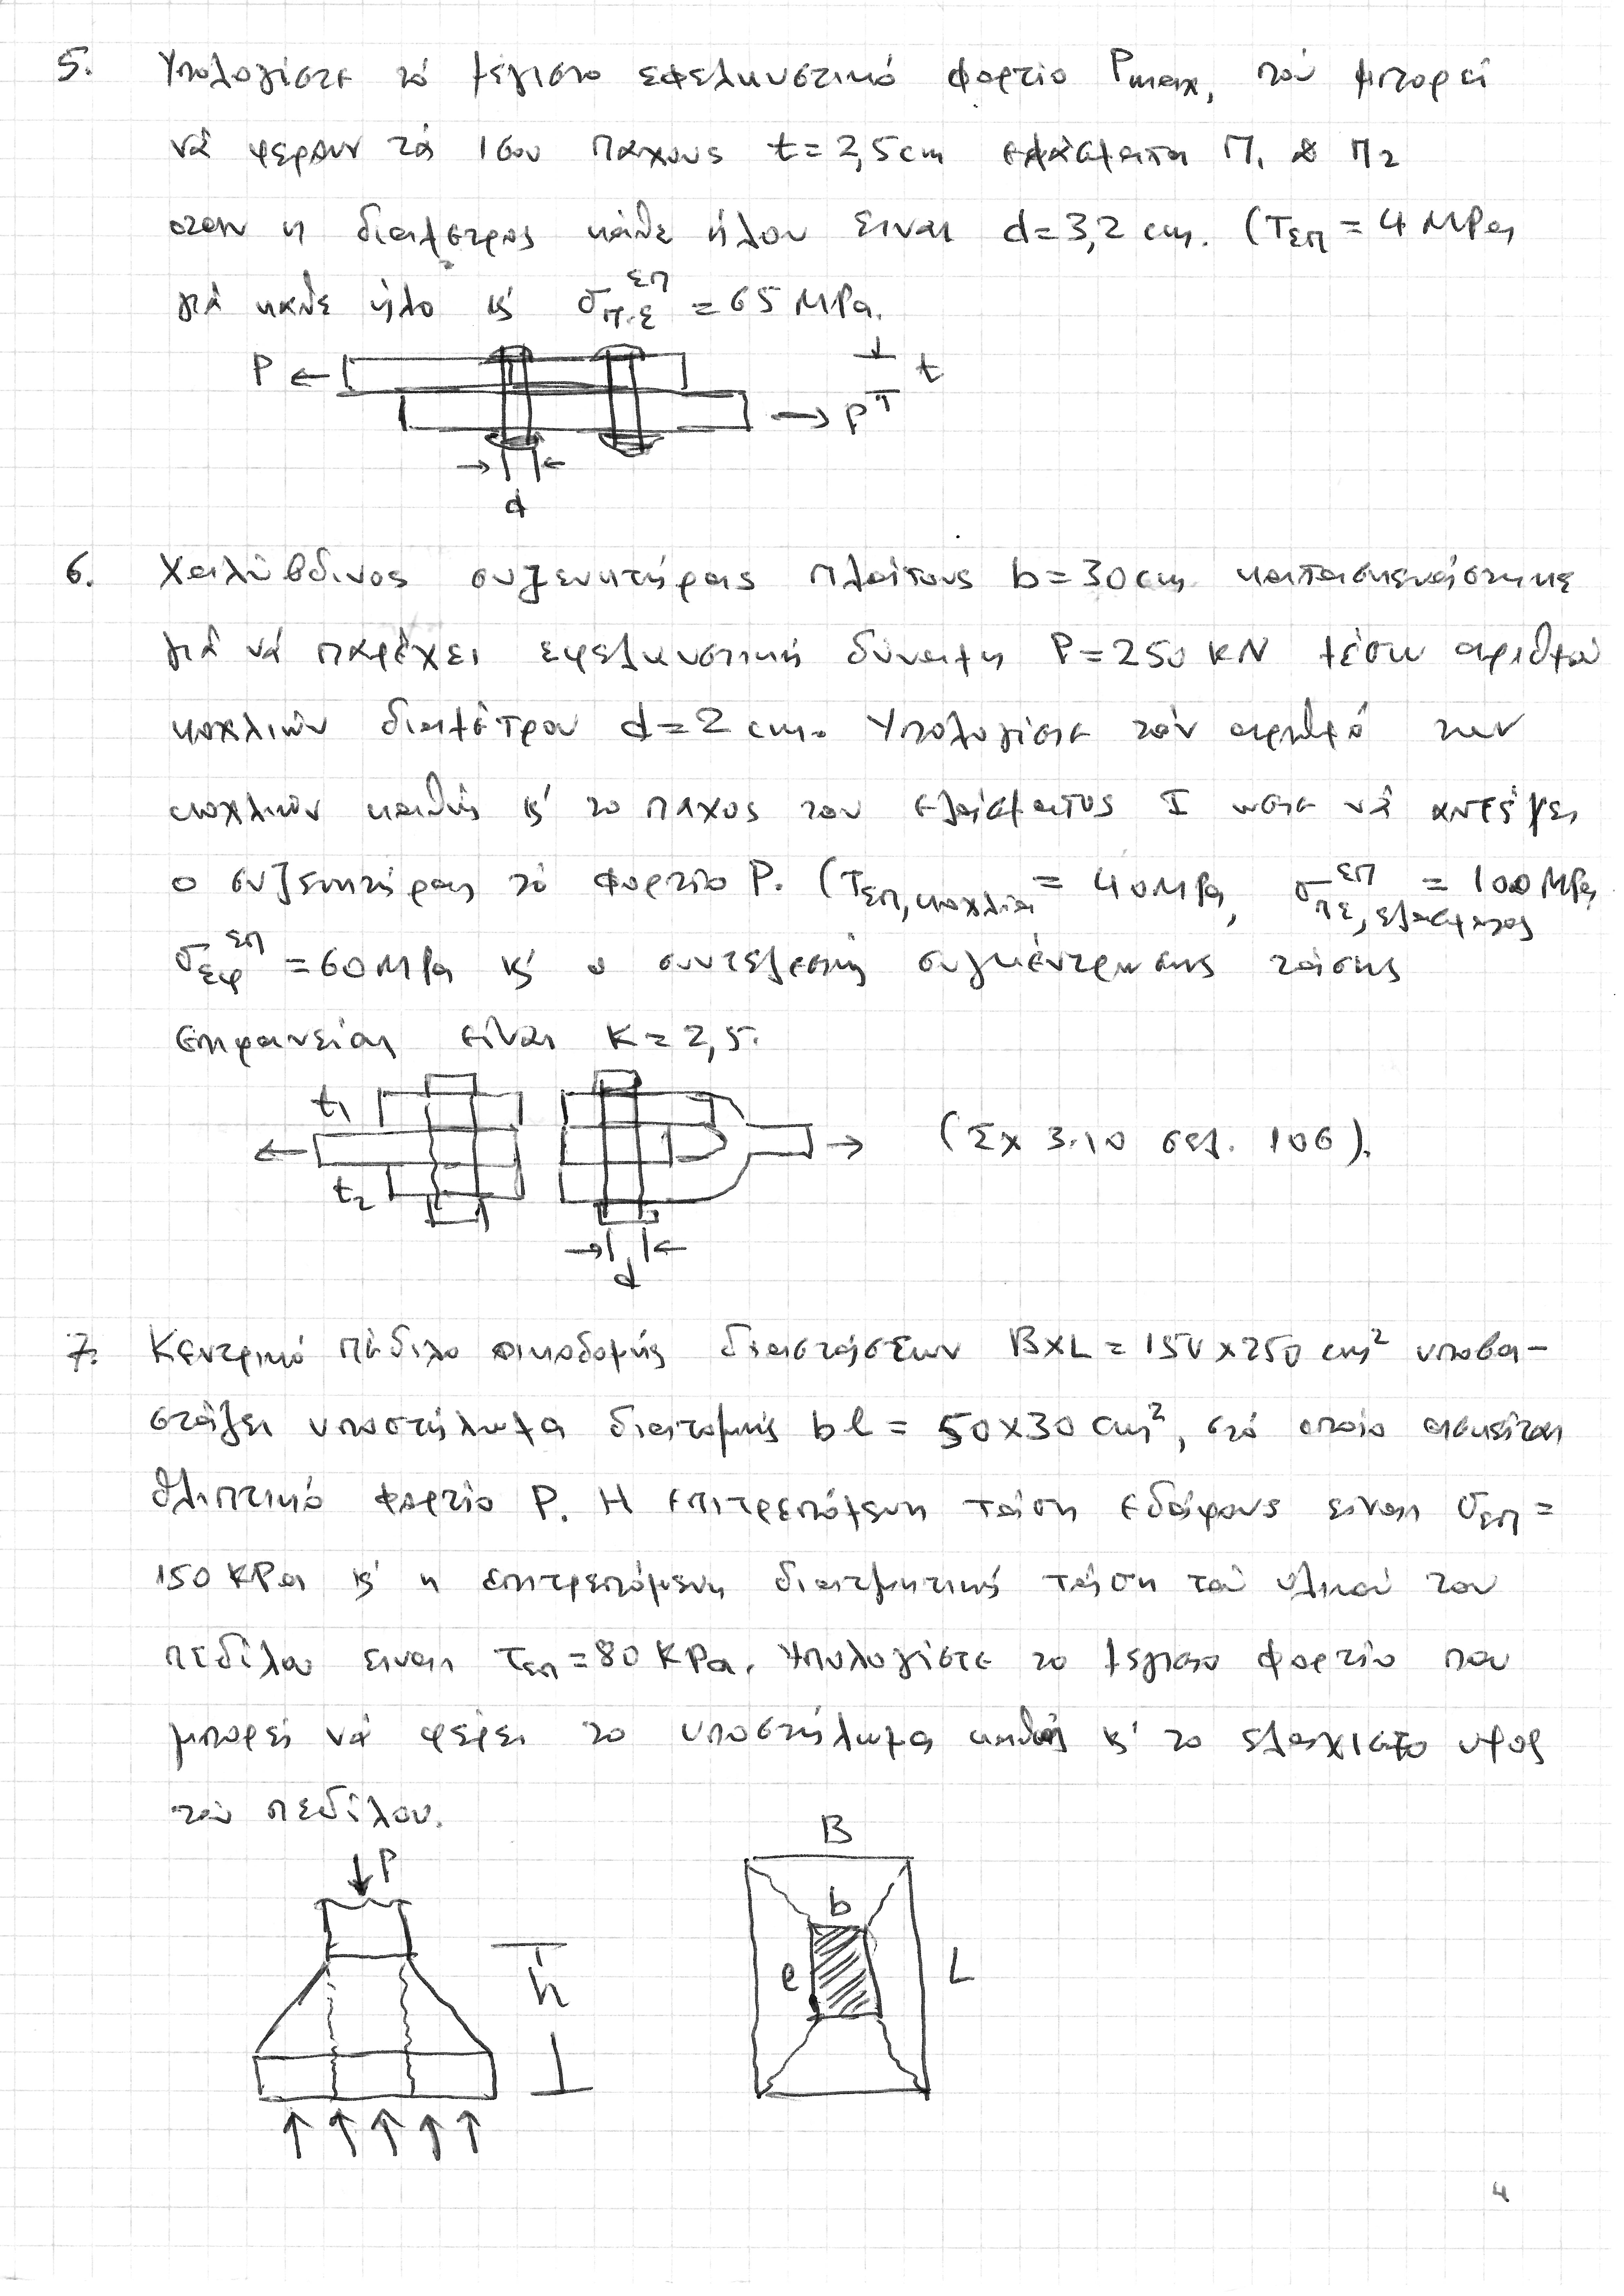 5. Υπολογίστε τό μέγιστο εφελκυστικό φορτίο Pmax, πού μπορεί
νά φερουν τά ισου παχους t=2,5cm ελάσματα Π1 & Π2
οταν η διαμετρος κάθε ήλου ειναι d=3,2 cm. (τεπ = 4 MPa
γιά καθε ήλο κ' σπ.ε^επ = 65 MPa.
P ← t
→ P
→ ←
d
6. Χαλύβδινος συζευκτήρας πλάτους b=30cm κατασκευάστηκε
γιά νά παρέχει εφελκυστική δύναμη P=250 KN μέσω αριθμού
κοχλιών διαμέτρου d=2 cm. Υπολογίστε τόν αριθμό των
κοχλιών καθώς κ' το παχος του ελάσματος I ωστε νά αντέξει
ο συζευκτήρας τό φορτίο P. (τεπ,κοχλία = 40MPa, σπε,ελάσματος^επ = 100MPa,
σεφ^επ = 60MPa κ' ο συντελεστής συγκέντρωσης τάσης
επιφανείας είναι K=2,5.
t1
← → (Σχ 3.10 σελ. 106).
t2
→ ←
d
7. Κεντρικό πέδιλο οικοδομής διαστάσεων BXL = 150x250 cm² υποβα-
στάζει υποστήλωμα διατομής bl = 50x30 cm², στό οποίο ασκείται
θλιπτικό φορτίο P. Η επιτρεπόμενη τάση εδάφους ειναι σεπ =
150 KPa κ' η επιτρεπόμενη διατμητική τάση τού υλικού του
πεδίλου ειναι τεπ = 80 KPa. Υπολογίστε το μεγιστο φορτίο που
μπορεί νά φέρει το υποστήλωμα καθώς κ' το ελάχιστο υψος
τού πεδίλου.
B
↓ P
b
h
l
L
↑ ↑ ↑ ↑ ↑
4